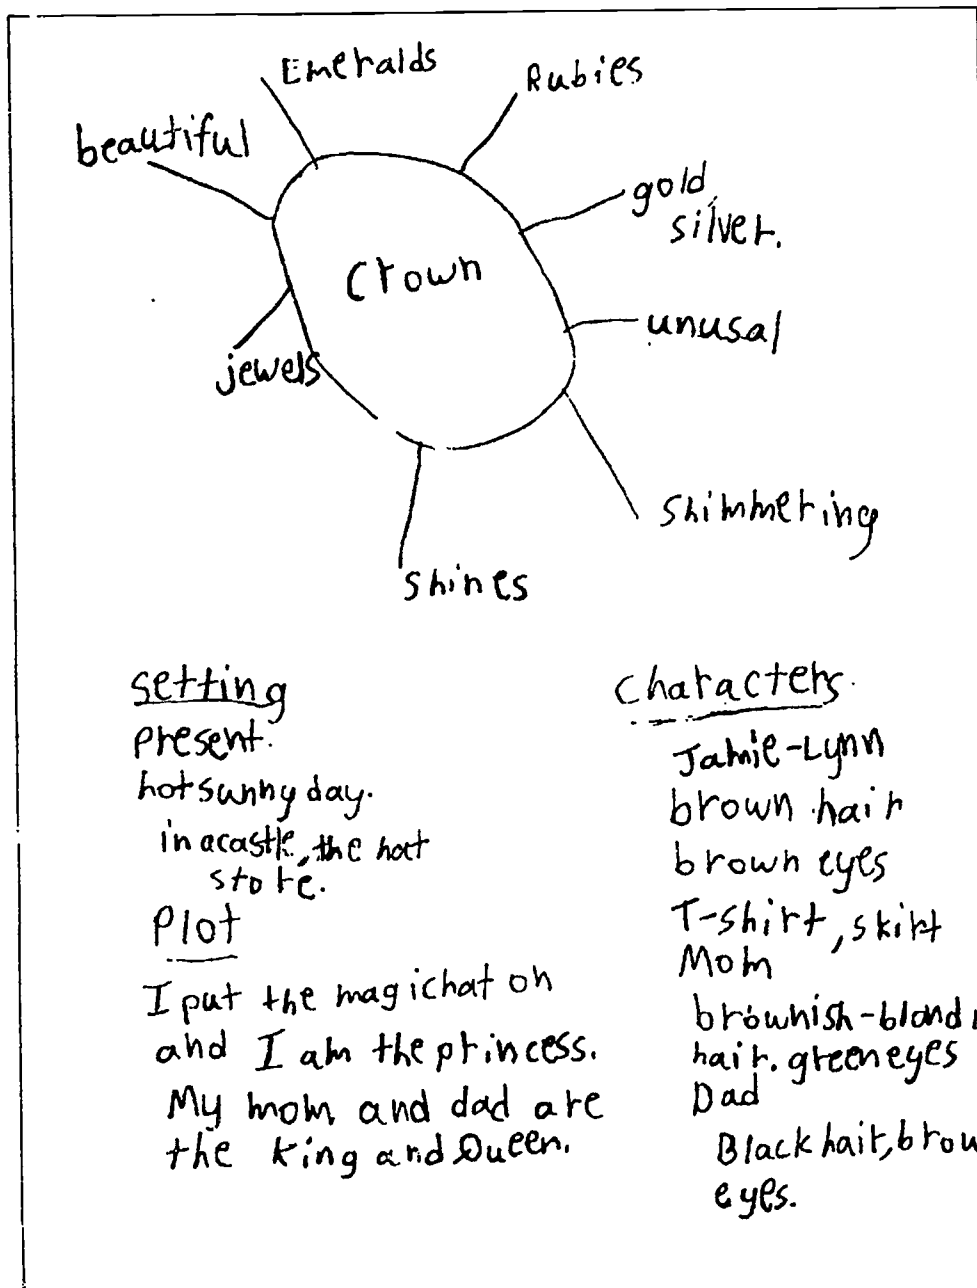 Emeralds
Rubies
beautiful
gold
silver.
Crown
unusal
jewels
shimmering
shines
setting
present.
hot sunny day.
in a castle, the hat
store.
Plot
I put the magic hat on
and I am the princess.
My mom and dad are
the king and Queen.
characters.
Jamie-Lynn
brown hair
brown eyes
T-shirt, skirt
Mom
brownish-blond
hair. green eyes
Dad
Black hair, brow
eyes.